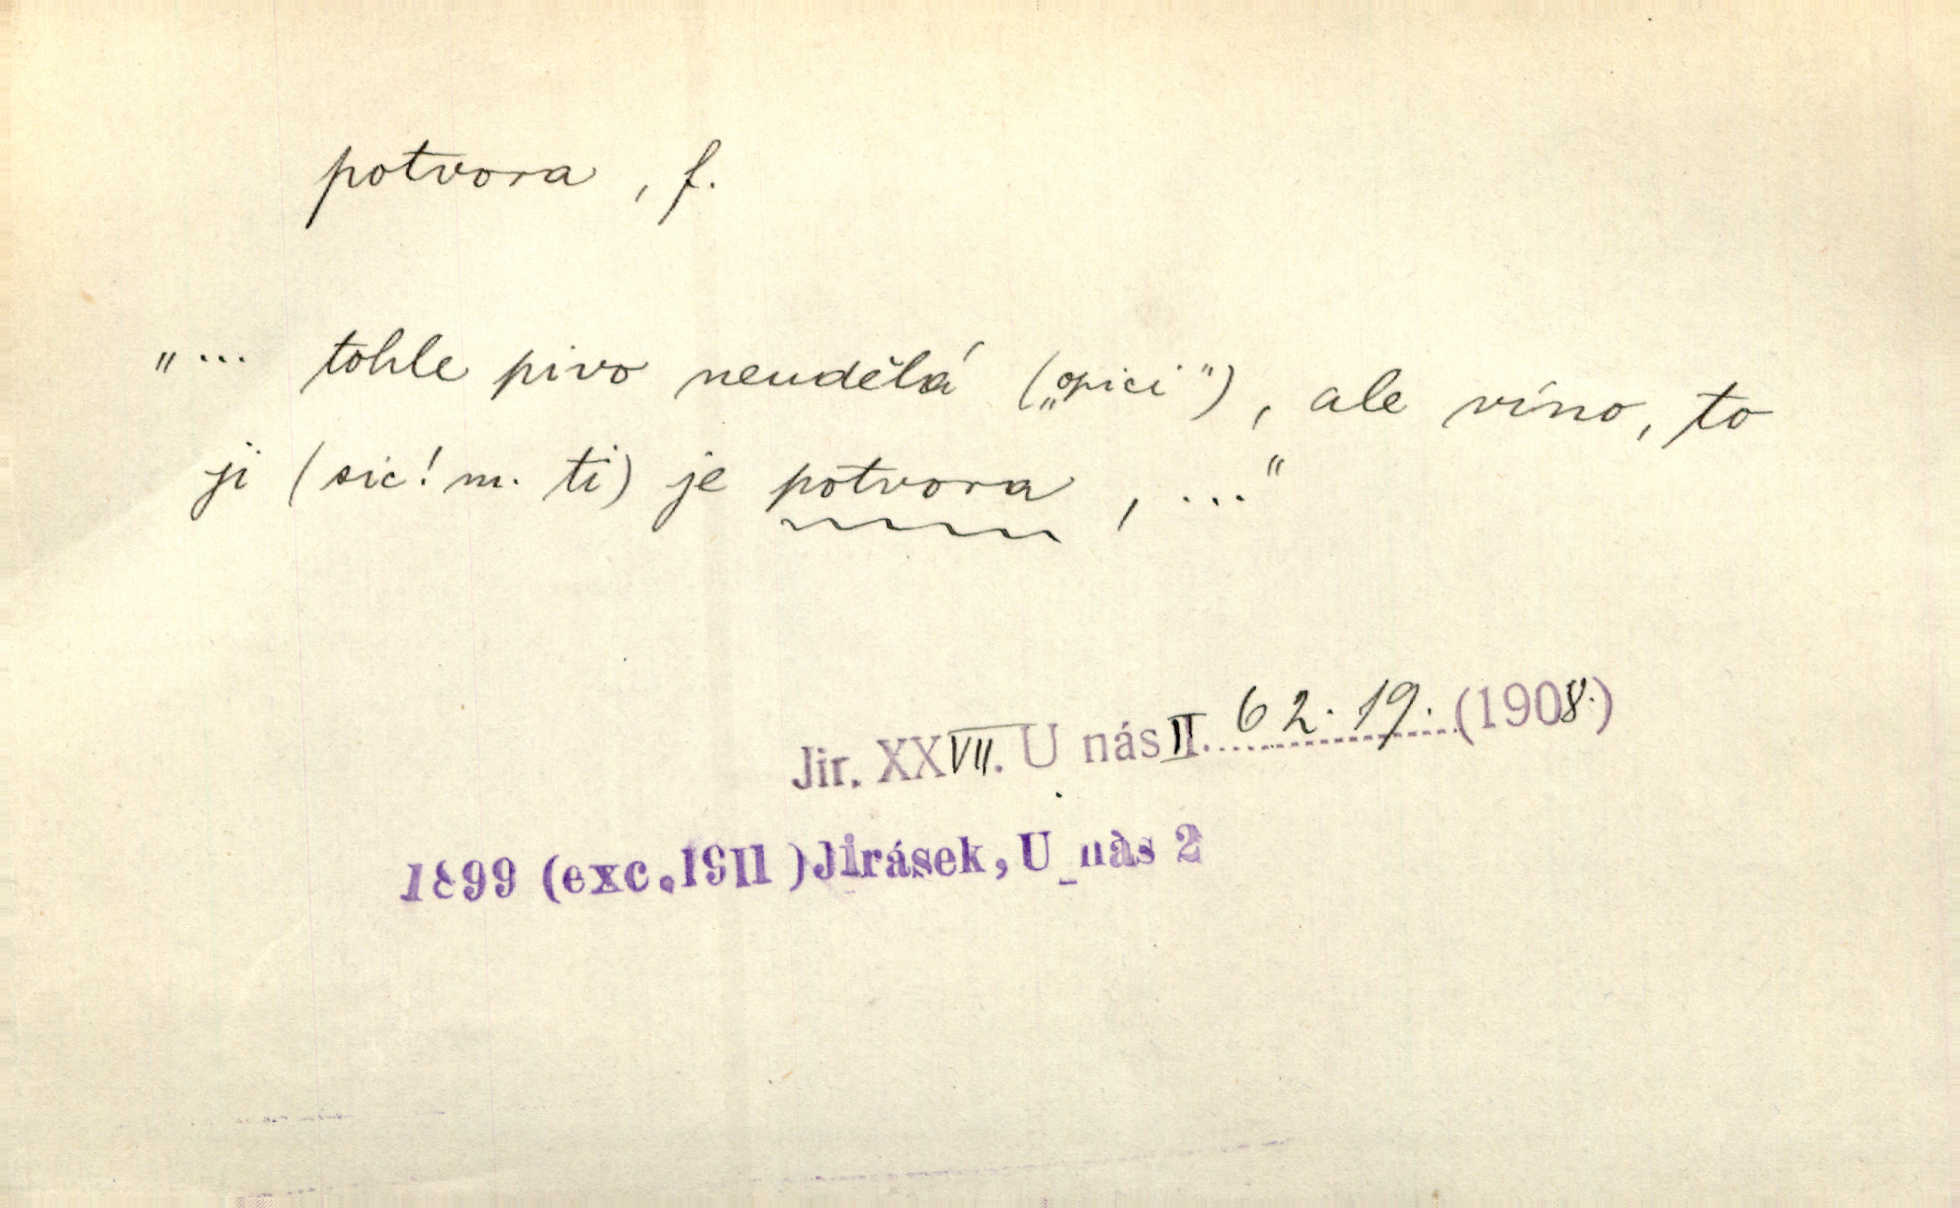 potvora, f.
„... tohle pivo neudělá („opici"), ale víno, to
ji (sic! m. ti) je potvora, ..."
Jir. XXVII. U nás II. 62. 19. (1908.)
1899 (exc. 1911) Jirásek, U nás 2